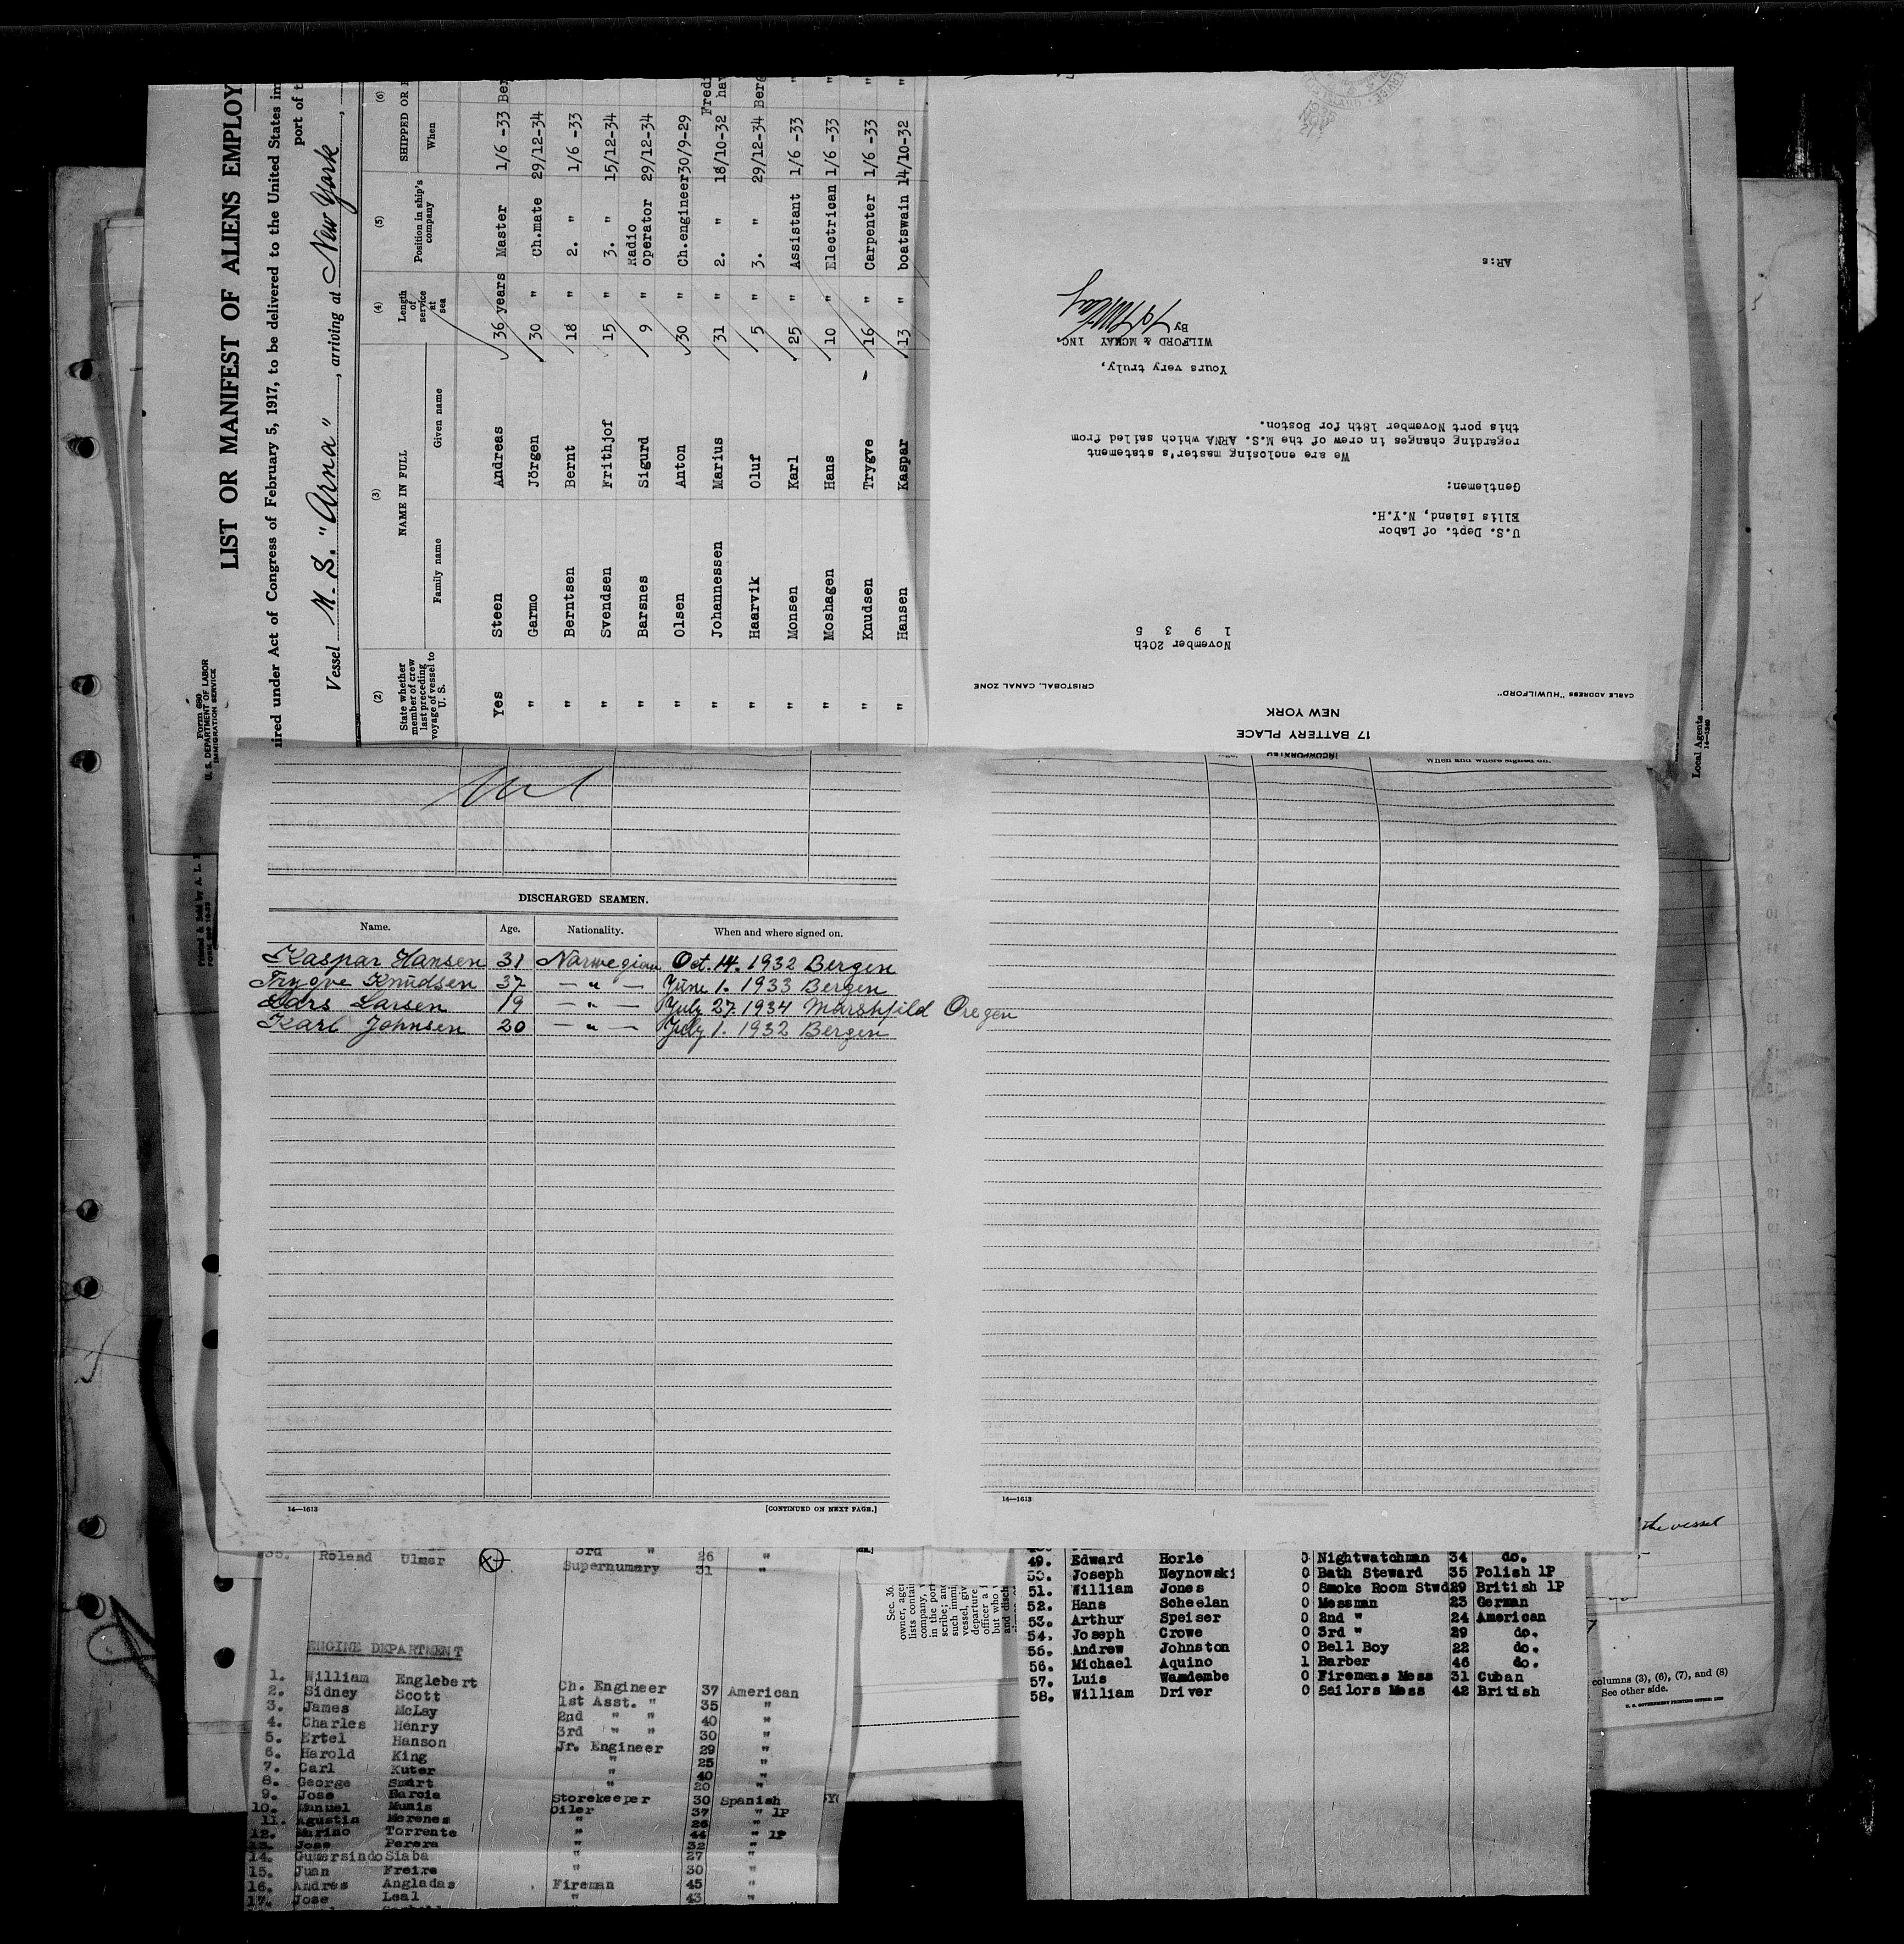 LIST OR MANIFEST OF ALIENS EMPLOY
uired under Act of Congress of February 5, 1917, to be delivered to the United States im
port of t
Vessel M. S. "Arna", arriving at New York,
Form 680
U. S. DEPARTMENT OF LABOR
IMMIGRATION SERVICE
(2) (3) (4) (5) (6)
State whether member of crew last preceding voyage of vessel to U. S.
NAME IN FULL
Family name Given name
Length of service at sea
Position in ship's company
SHIPPED OR
When
Yes Steen Andreas 36 years Master 1/6 -33 Ber
" Garmo Jörgen 30 " Ch.mate 29/12-34
" Berntsen Bernt 18 " 2. " 1/6 -33
" Svendsen Frithjof 15 " 3. " 15/12-34
" Barsnes Sigurd 9 " Radio operator 29/12-34
" Olsen Anton 30 " Ch.engineer 30/9-29
" Johannessen Marius 31 " 2. " 18/10-32 Fredi hav
" Haarvik Oluf 5 " 3. " 29/12-34 Berg
" Monsen Karl 25 " Assistant 1/6 -33 "
" Moshagen Hans 10 " Electrican 1/6 -33 "
" Knudsen Trygve 16 " Carpenter 1/6 -33 "
" Hansen Kaspar 13 " boatswain 14/10-32 "
INCORPORATED
17 BATTERY PLACE
NEW YORK
CABLE ADDRESS "HUWILFORD"
CRISTOBAL, CANAL ZONE
November 20th
1 9 3 5
U.S. Dept. of Labor
Ellis Island, N.Y.H.
Gentlemen:
We are enclosing master's statement
regarding changes in crew of the M.S. ARNA which sailed from
this port November 18th for Boston.
Yours very truly,
WILFORD & MCKAY INC.
By
AR:s
Local Agents
14-1240
When and where signed on.
DISCHARGED SEAMEN.
Name. Age. Nationality. When and where signed on.
Kaspar Hansen 31 Norwegian Oct. 14. 1932 Bergen
Trygve Knudsen 37 — " — June 1. 1933 Bergen
Lars Larsen 19 — " — July 27. 1934 Marshfild Oregen
Karl Johnsen 20 — " — July 1. 1932 Bergen
14—1613 [CONTINUED ON NEXT PAGE.]
14—1613
the vessel
3rd " 26 "
35. Roland Ulmer Supernumary 31 "
ENGINE DEPARTMENT
1. William Englebert Ch. Engineer 37 American
2. Sidney Scott 1st Asst. " 35 "
3. James McLay 2nd " " 40 "
4. Charles Henry 3rd " " 30 "
5. Ertel Hanson Jr. Engineer 29 "
6. Harold King " 25 "
7. Carl Kuter " 40 "
8. George Smart " 20 "
9. Jose Barcia Storekeeper 30 Spanish
10. Manuel Munis Oiler 37 " 1P
11. Agustin Merenes " 26 "
12. Marino Torrente " 44 " 1P
13. Jose Perera " 32 "
14. Gumersindo Siaba " 27 "
15. Juan Freire " 30 "
16. Andres Angladas Fireman 45 "
17. Jose Leal " 43 "
Sec. 36.
owner, agen
lists contai
company,
in the port
scribe; and
such immi
vessel, giv
departure
officer a l
but who
and disch
49. Edward Horle 0 Nightwatchman 34 do.
50. Joseph Neynowski 0 Bath Steward 35 Polish 1P
51. William Jones 0 Smoke Room Stwd 29 British 1P
52. Hans Scheelan 0 Messman 23 German
53. Arthur Speiser 0 2nd " 24 American
54. Joseph Crowe 0 3rd " 29 do.
55. Andrew Johnston 0 Bell Boy 22 do.
56. Michael Aquino 1 Barber 46 do.
57. Luis Wamdembe 0 Firemens Mess 31 Cuban
58. William Driver 0 Sailors Mess 42 British
columns (3), (6), (7), and (8)
See other side.